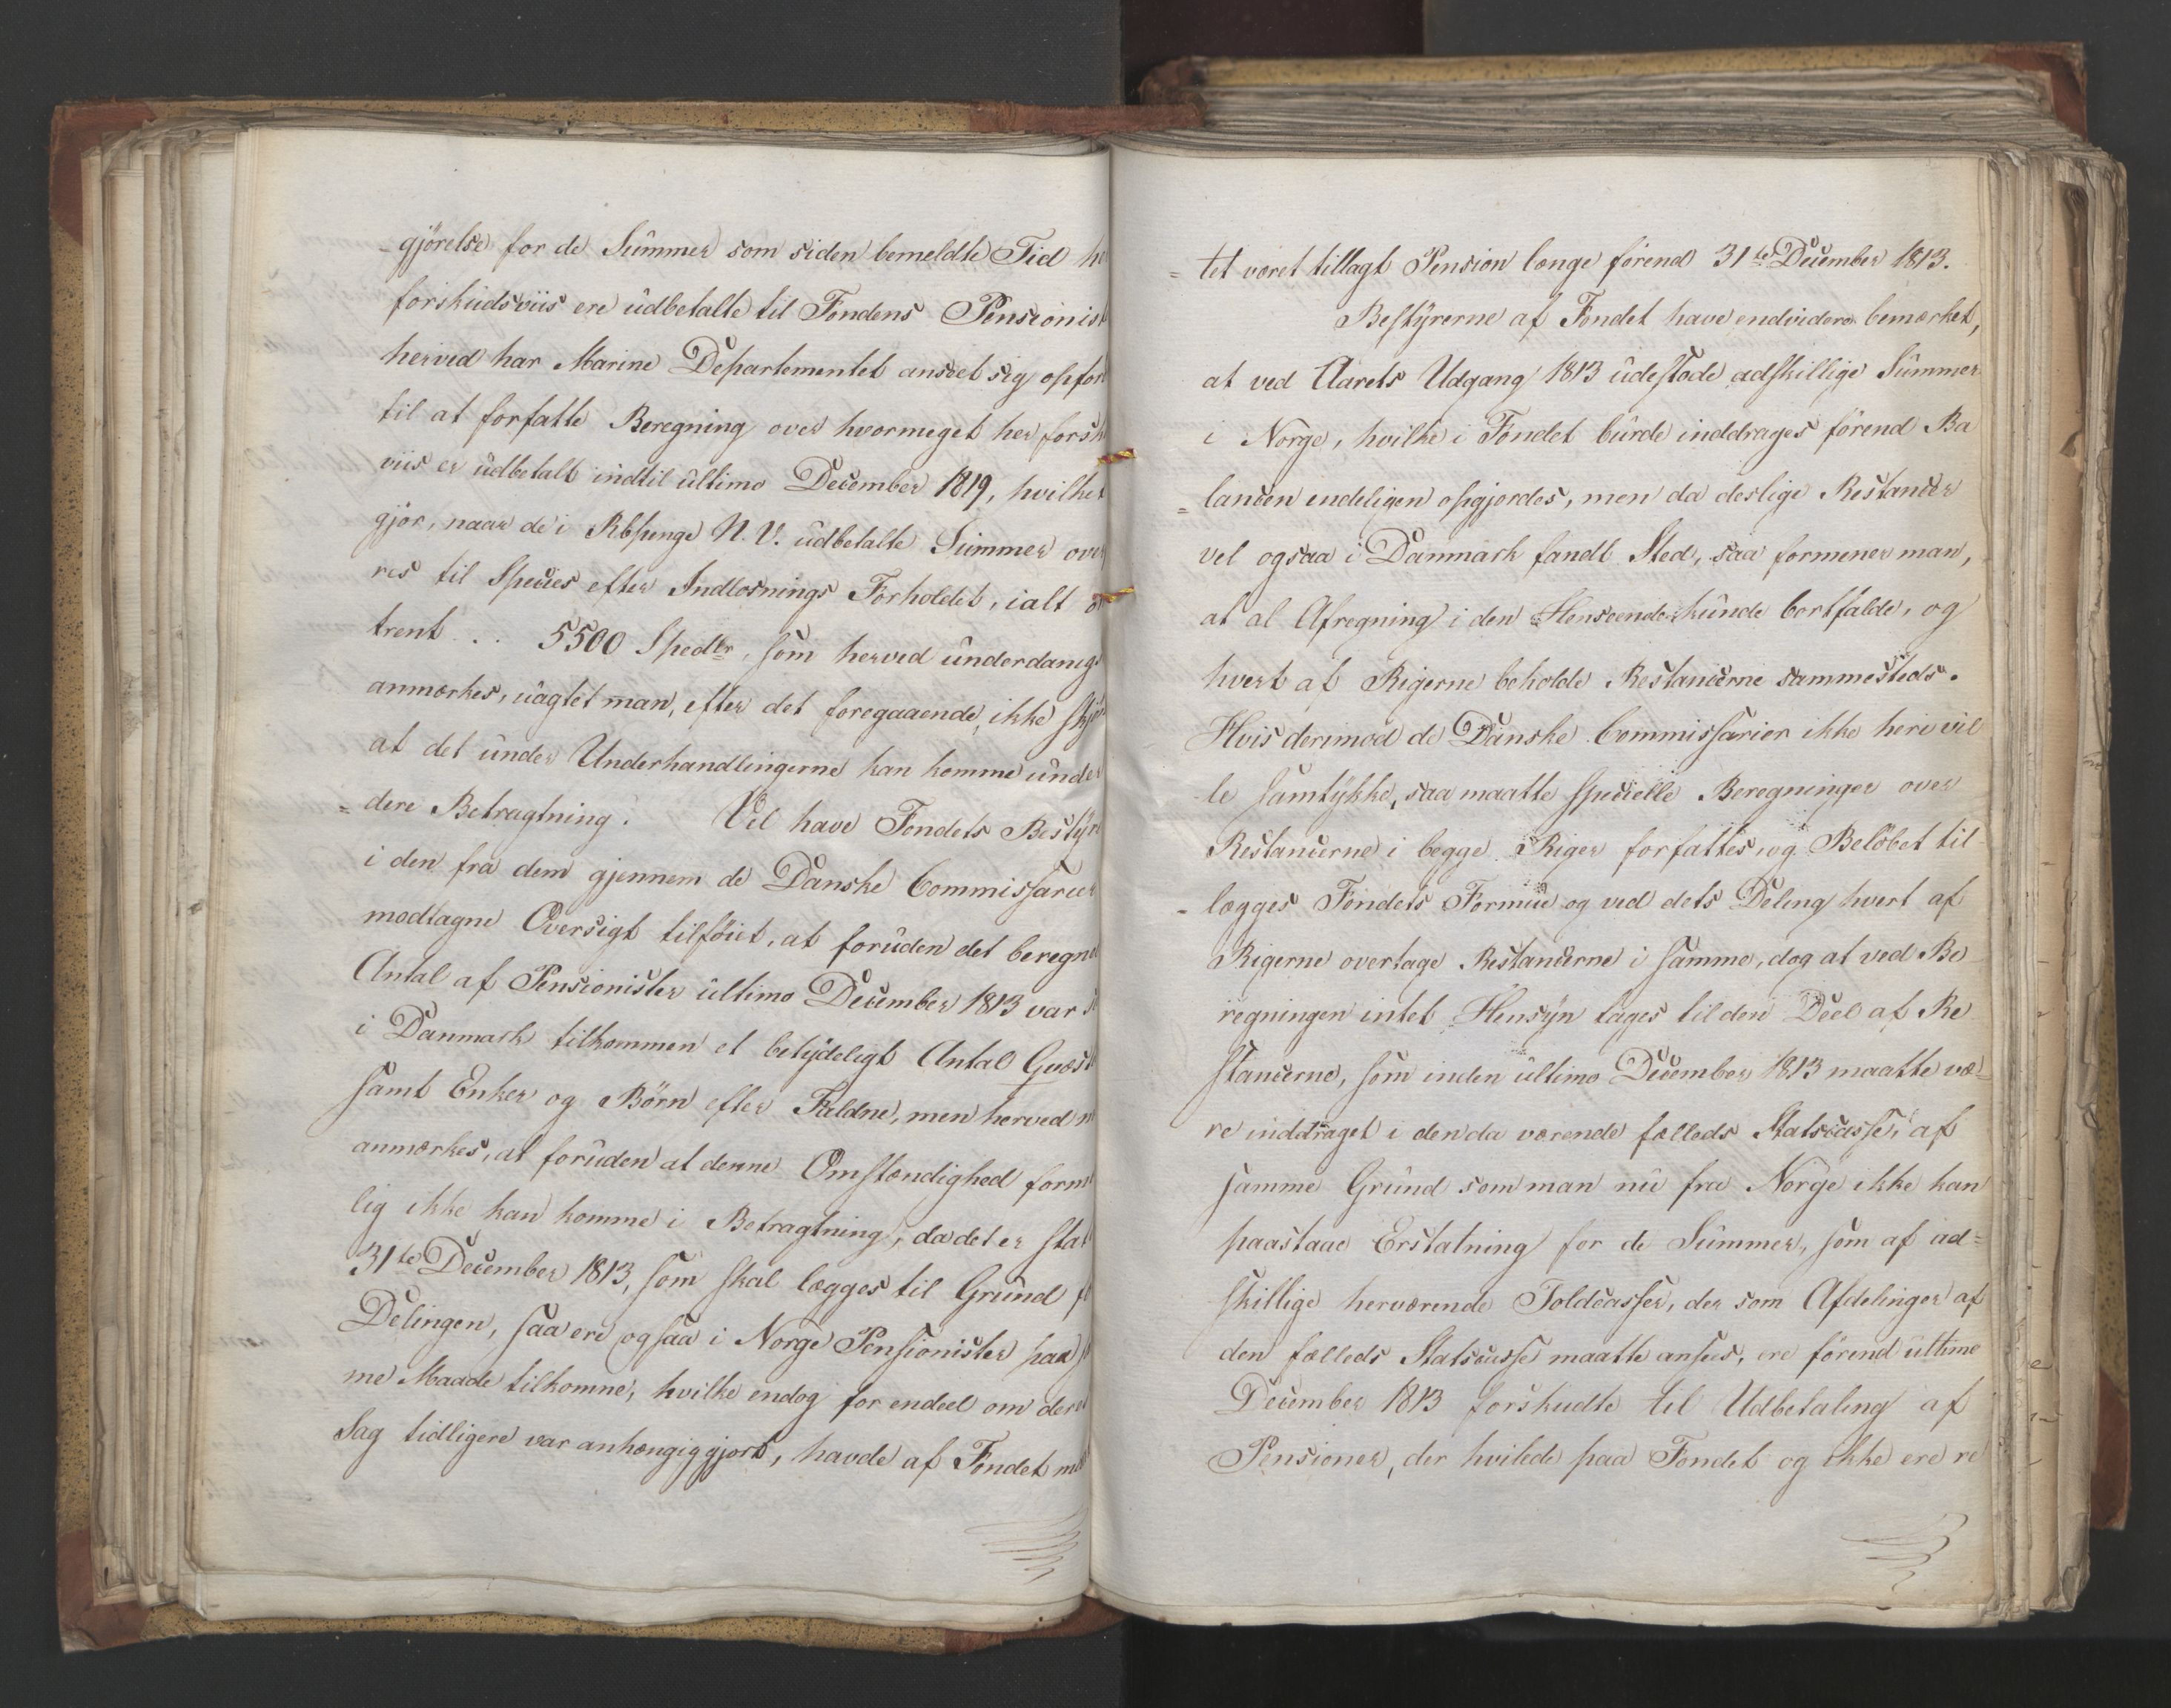 -gjörelse for de Summer som siden bemeldte Tid
forskudsviis ere udbetalte til Fondens Pensionist
herved har Marine Departementet anseet sig opfor
til at forfatte Beregning over hvormeget her forsk
viis er udbetalt indtil ultimo December 1819, hvilket
gjör, naar de i Rbpenge N. V. udbetalte Summer over
res til Species efter Indlösnings Forholdet, ialt
trent .. 5500 Spedlr, som herved underdanigs
anmærkes, uagtet man, efter det foregaaende, ikke
at det under Underhandlingerne kan komme under
= dere Betragtning. Vel have Fondets Bestyre
i den fra dem gjennem de Danske Commissarier
modtagne Oversigt tilföiet, at foruden det beregne
Antal af Pensionister ultimo December 1813 var
i Danmark tilkommen et betydeligt Antal Qvæst
samt Enker og Börn efter Faldne, men herved
anmærkes, at foruden at denne Omstændighed form
lig ikke kan komme i Betragtning, da det er stat
31te December 1813, som skal lægges til Grund
Delingen, saa ere ogsaa i Norge Pensionister paa
me Maade tilkomne, hvilke endog for endeel om deres
Sag tidligere var anhængiggjort, havde af Fondet
= tet været tillagt Pension længe förend 31te December 1813.
Bestyrerne af Fondet have endvidere bemærket,
at ved Aarets Udgang 1813 udestode adskillige Summer
i Norge, hvilke i Fondet burde inddrages förend Ba
= lancen endeligen opgjordes, men da deslige Restancer
vel ogsaa i Danmark fandt Sted, saa formener man,
at al Afregning i den Henseende kunde bortfalde, og
hvert af Rigerne beholde Restancerne sammesteds.
Hvis derimod de Danske Commissarier ikke heri vil
le samtykke, saa maatte specielle Beregninger over
Restancerne i begge Riger forfattes, og Belöbet til-
- lægges Fondets Formue og ved dets Deling hvert af
Rigerne overtage Restancerne i samme, dog at ved Be
regningen intet Hensyn tages til den Deel af Re
stancerne, som inden ultimo December 1813 maatte væ-
re inddraget i den da værende fælleds Statscasse, af
samme Grund som man nu fra Norge ikke kan
paastaae Erstatning for de Summer, som af ad=
skillige herværende Toldcasser, der som Afdelinger af
den fælleds Statscasse maatte ansees, ere förend ultimo
December 1813 forskudte til Udbetaling af
Pensioner, der hvilede paa Fondet og ikke ere re